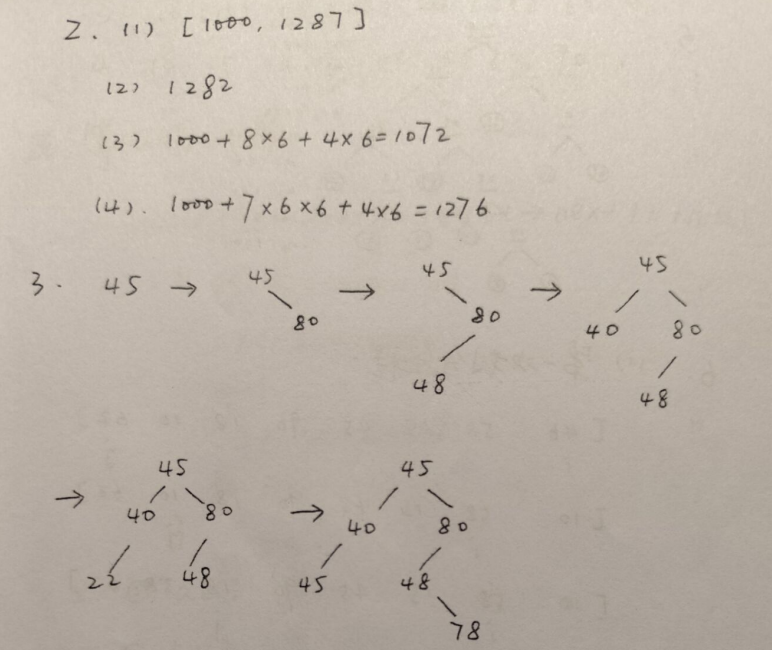 2. (1) [1000, 1287]
(2) 1282
(3) 1000+8×6+4×6=1072
(4). 1000+7×6×6+4×6=1276
3. 45 → 45 → 45 → 45
80 80 40 80
48 48
→ 45 → 45
40 80 40 80
22 48 45 48
78